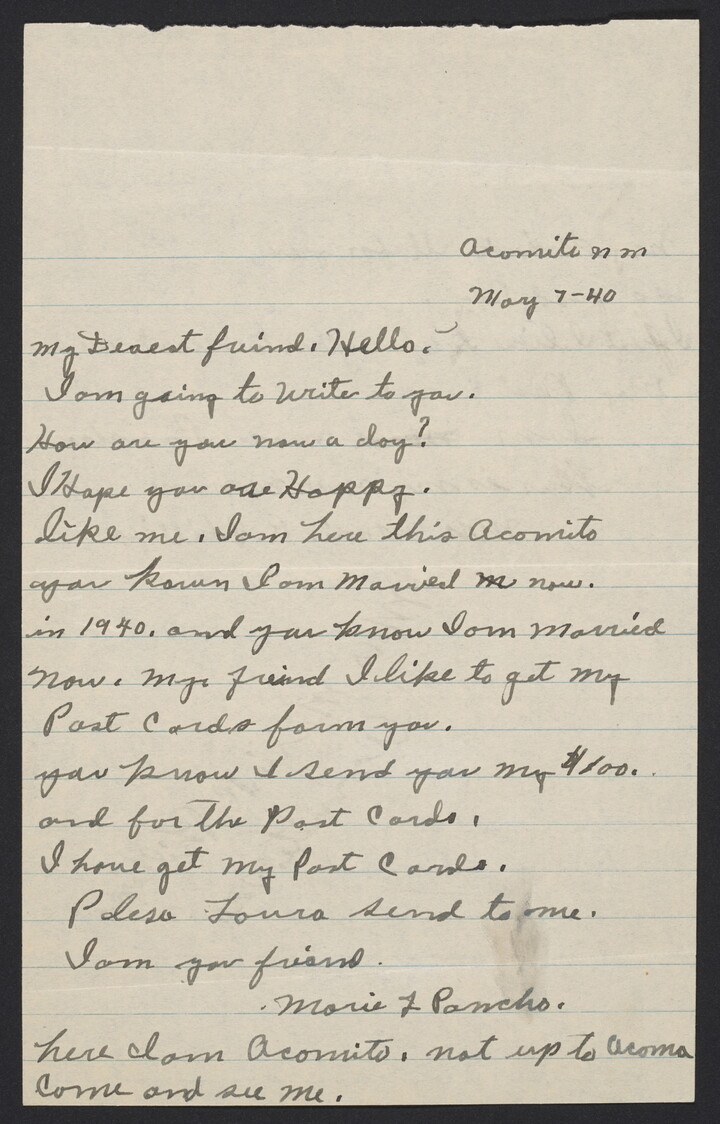 Acomito n m
May 7-40
my Dearest friend. Hello.
I am going to write to you.
How are you now a day?
I Hope you are Happy.
like me. I am here this Acomito
you known I am Married m now.
in 1940. and you know I am married
now. my friend I like to get my
Post Cards form you.
you know I send you my $1.00.
and for the Post Cards.
I have get my Post Cards.
Pdese Loura send to me.
I am you friend.
Marie L Pancho.
here I am Acomito. not up to Acoma
Come and see me.